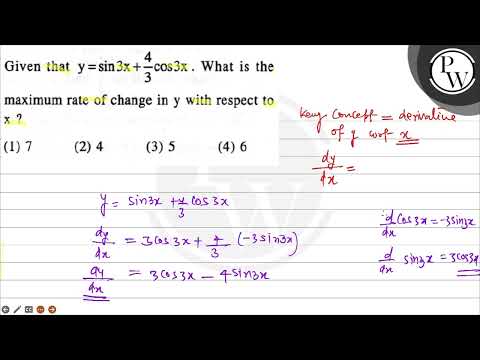 Given that y=sin3x+4/3cos3x. What is the
maximum rate of change in y with respect to
x ?
(1) 7 (2) 4 (3) 5 (4) 6
Key Concept = derivative
of y wrt x
dy/dx =
y = sin3x + 4/3 cos3x
dy/dx = 3cos3x + 4/3 (-3sin3x)
dy/dx = 3cos3x - 4sin3x
d/dx cos3x = -3sin3x
d/dx sin3x = 3cos3x
PW